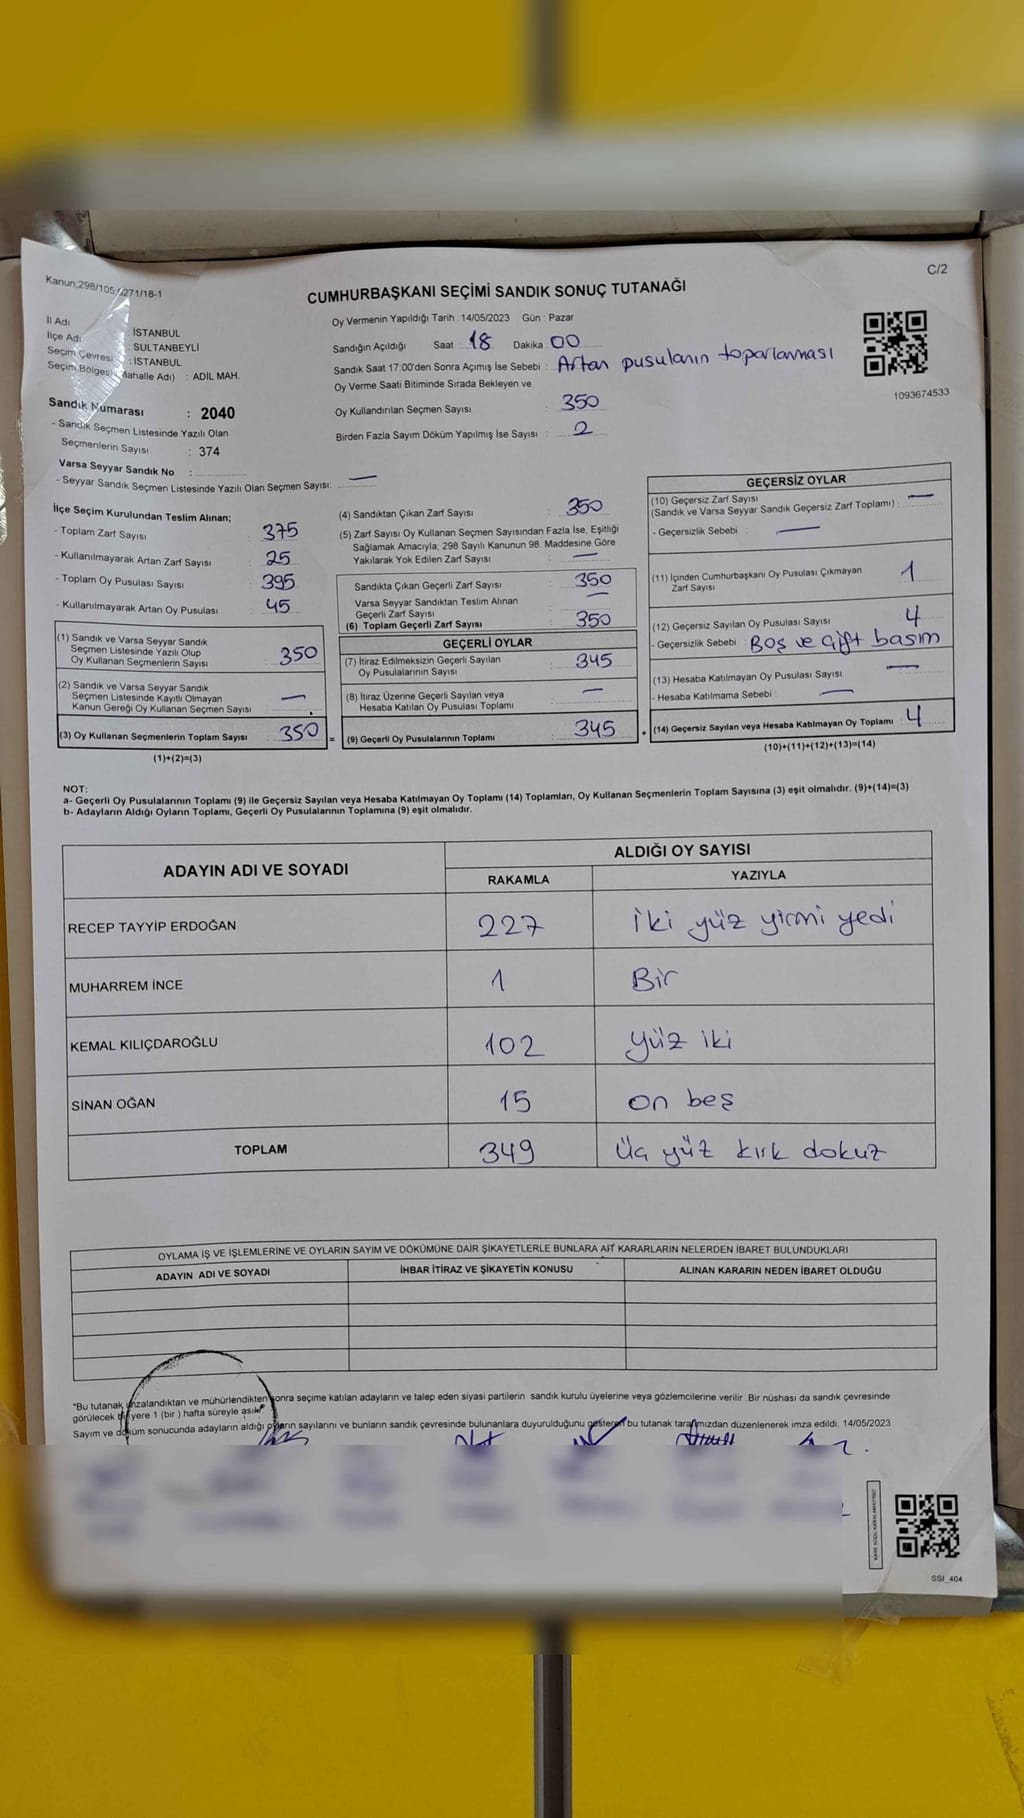 Kanun.298/105,6271/18-1
C/2
CUMHURBAŞKANI SEÇİMİ SANDIK SONUÇ TUTANAĞI
İl Adı : İSTANBUL
İlçe Adı : SULTANBEYLİ
Seçim Çevresi : İSTANBUL
Seçim Bölgesi (Mahalle Adı) : ADİL MAH.
Sandık Numarası : 2040
- Sandık Seçmen Listesinde Yazılı Olan
Seçmenlerin Sayısı : 374
Varsa Seyyar Sandık No :
- Seyyar Sandık Seçmen Listesinde Yazılı Olan Seçmen Sayısı: —
Oy Vermenin Yapıldığı Tarih : 14/05/2023 Gün : Pazar
Sandığın Açıldığı Saat 18 Dakika 00
Sandık Saat 17:00'den Sonra Açımış İse Sebebi : Artan pusulanın toparlanması
Oy Verme Saati Bitiminde Sırada Bekleyen ve
Oy Kullandırılan Seçmen Sayısı : 350
Birden Fazla Sayım Döküm Yapılmış İse Sayısı : 2
1093674533
İlçe Seçim Kurulundan Teslim Alınan;
- Toplam Zarf Sayısı : 375
- Kullanılmayarak Artan Zarf Sayısı : 25
- Toplam Oy Pusulası Sayısı : 395
- Kullanılmayarak Artan Oy Pusulası : 45
(1) Sandık ve Varsa Seyyar Sandık
Seçmen Listesinde Yazılı Olup
Oy Kullanan Seçmenlerin Sayısı : 350
(2) Sandık ve Varsa Seyyar Sandık
Seçmen Listesinde Kayıtlı Olmayan
Kanun Gereği Oy Kullanan Seçmen Sayısı : —
(3) Oy Kullanan Seçmenlerin Toplam Sayısı : 350 =
(1)+(2)=(3)
(4) Sandıktan Çıkan Zarf Sayısı : 350
(5) Zarf Sayısı Oy Kullanan Seçmen Sayısından Fazla İse, Eşitliği
Sağlamak Amacıyla, 298 Sayılı Kanunun 98. Maddesine Göre
Yakılarak Yok Edilen Zarf Sayısı : —
Sandıkta Çıkan Geçerli Zarf Sayısı : 350
Varsa Seyyar Sandıktan Teslim Alınan
Geçerli Zarf Sayısı : —
(6) Toplam Geçerli Zarf Sayısı : 350
GEÇERLİ OYLAR
(7) İtiraz Edilmeksizin Geçerli Sayılan
Oy Pusulalarının Sayısı : 345
(8) İtiraz Üzerine Geçerli Sayılan veya
Hesaba Katılan Oy Pusulası Toplamı : —
(9) Geçerli Oy Pusulalarının Toplamı : 345 +
GEÇERSİZ OYLAR
(10) Geçersiz Zarf Sayısı
(Sandık ve Varsa Seyyar Sandık Geçersiz Zarf Toplamı) : —
- Geçersizlik Sebebi : —
(11) İçinden Cumhurbaşkanı Oy Pusulası Çıkmayan
Zarf Sayısı : 1
(12) Geçersiz Sayılan Oy Pusulası Sayısı : 4
- Geçersizlik Sebebi : Boş ve çift basım
(13) Hesaba Katılmayan Oy Pusulası Sayısı : —
- Hesaba Katılmama Sebebi : —
(14) Geçersiz Sayılan veya Hesaba Katılmayan Oy Toplamı : 4
(10)+(11)+(12)+(13)=(14)
NOT:
a- Geçerli Oy Pusulalarının Toplamı (9) ile Geçersiz Sayılan veya Hesaba Katılmayan Oy Toplamı (14) Toplamları, Oy Kullanan Seçmenlerin Toplam Sayısına (3) eşit olmalıdır. (9)+(14)=(3)
b- Adayların Aldığı Oyların Toplamı, Geçerli Oy Pusulalarının Toplamına (9) eşit olmalıdır.
ADAYIN ADI VE SOYADI ALDIĞI OY SAYISI
RAKAMLA YAZIYLA
RECEP TAYYİP ERDOĞAN 227 iki yüz yirmi yedi
MUHARREM İNCE 1 Bir
KEMAL KILIÇDAROĞLU 102 yüz iki
SİNAN OĞAN 15 on beş
TOPLAM 349 üç yüz kırk dokuz
OYLAMA İŞ VE İŞLEMLERİNE VE OYLARIN SAYIM VE DÖKÜMÜNE DAİR ŞİKAYETLERLE BUNLARA AİT KARARLARIN NELERDEN İBARET BULUNDUKLARI
ADAYIN ADI VE SOYADI İHBAR İTİRAZ VE ŞİKAYETİN KONUSU ALINAN KARARIN NEDEN İBARET OLDUĞU
*Bu tutanak imzalandıktan ve mühürlendikten sonra seçime katılan adayların ve talep eden siyasi partilerin sandık kurulu üyelerine veya gözlemcilerine verilir. Bir nüshası da sandık çevresinde
görülecek bir yere 1 (bir) hafta süreyle asılır.
Sayım ve döküm sonucunda adayların aldığı oyların sayılarını ve bunların sandık çevresinde bulunanlara duyurulduğunu gösteren bu tutanak tarafımızdan düzenlenerek imza edildi. 14/05/2023
SSI_404